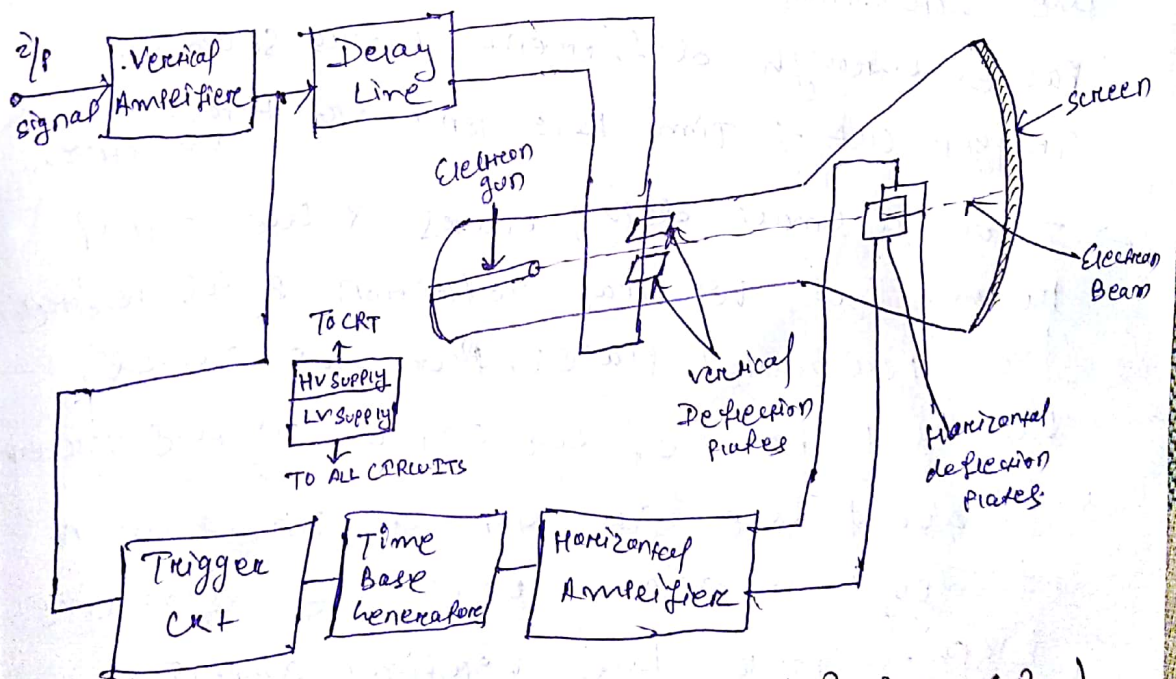 i/p
signal
Vertical
Amplifier
Delay
Line
Electron
gun
Screen
Electron
Beam
TO CRT
HV SUPPLY
LV SUPPLY
TO ALL CIRCUITS
Vertical
Deflection
Plates
Horizontal
deflection
Plates.
Trigger
CKt
Time
Base
Generator
Horizontal
Amplifier